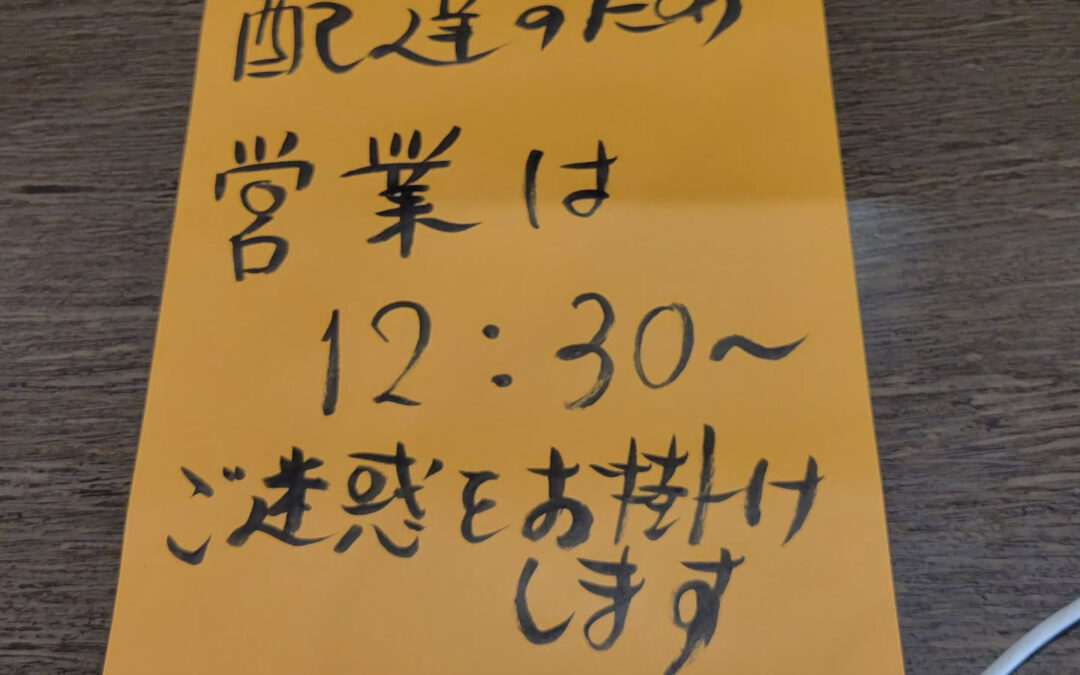 配達のため
営業は
12:30〜
ご迷惑をお掛け
します